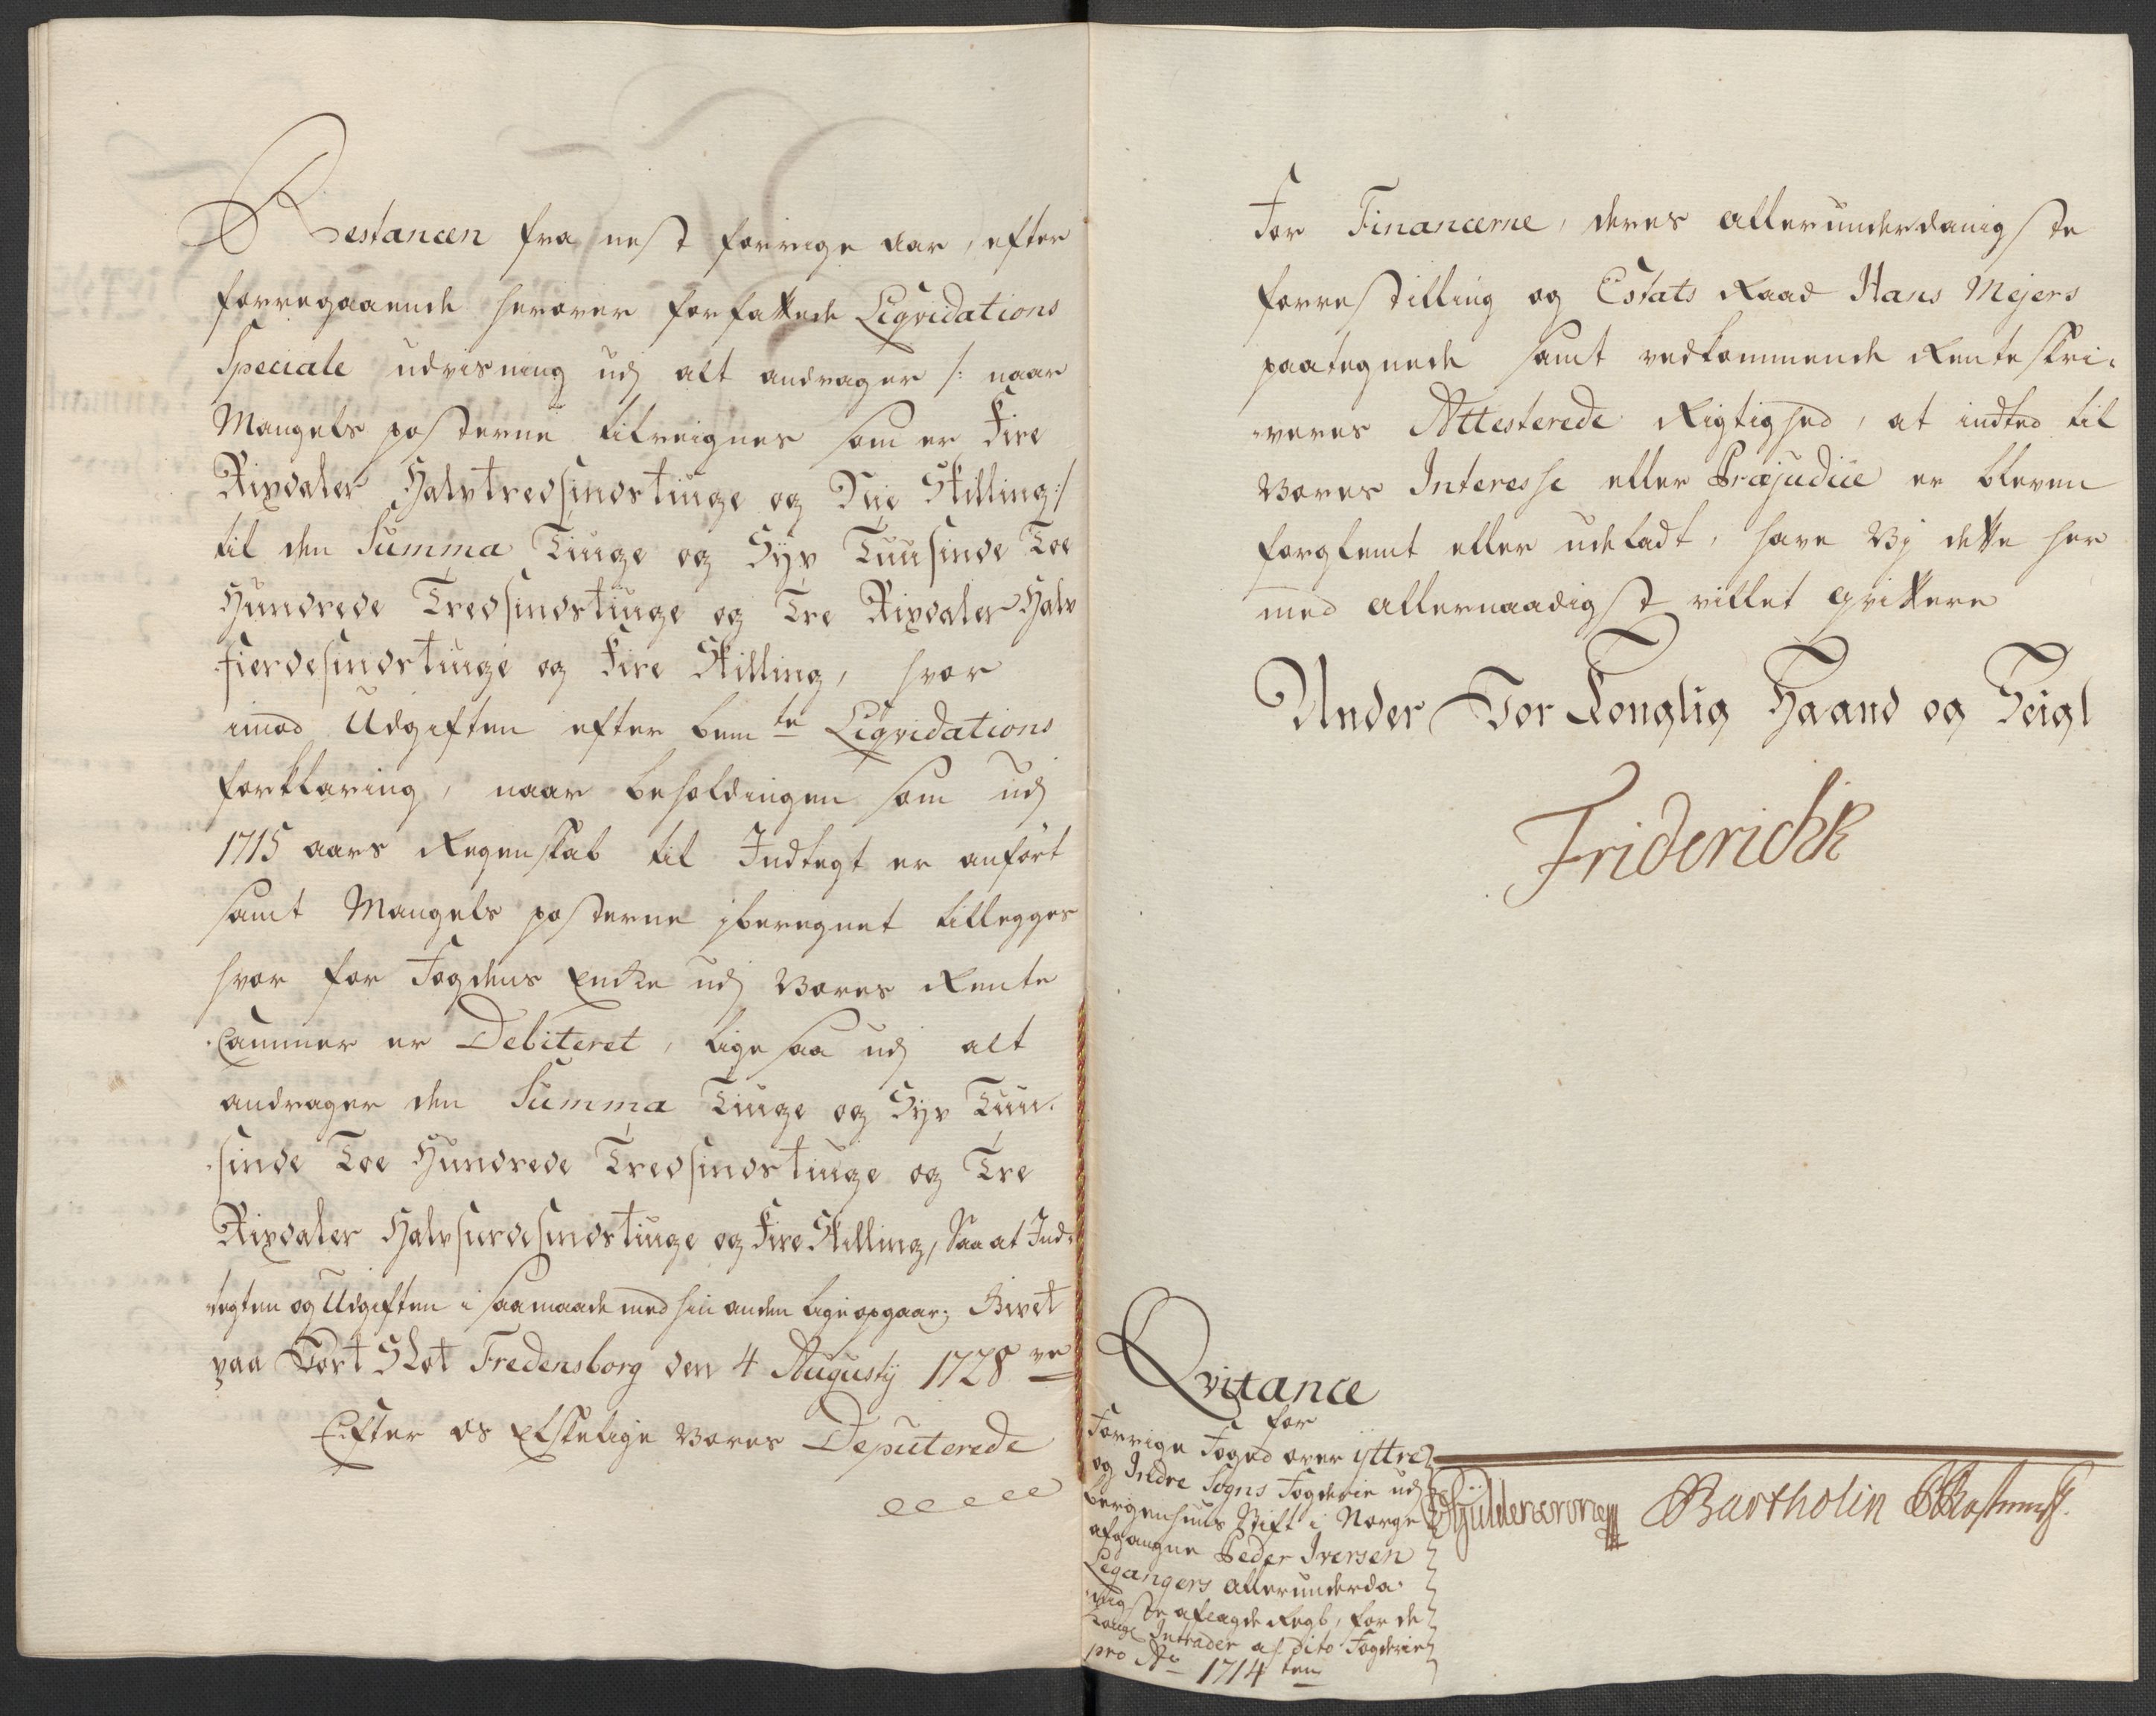 Restancen fra nest forrige aar, efter
forregaaende herover forfattede Liqvidations
Speciale udvisning udj alt andrager /: naar
Mangels posterne tilreignes som er Fire
Rixdaler Halvtredsindstiuge og Nie Skilling :/
til den Summa Tiuge og Syv Tuusinde Toe
Hundrede Tredsindstiuge og Tre Rixdaler Halv
fierdesindstiuge og Fire Skilling, hvor
imod Udgiften efter bemte Liqvidations
forklaring, naar beholdingen som udj
1715 aars Regenskab til Indtegt er anført
samt Mangels posterne iberegnet tillegges
hvor for Fogdens Encke udj Vores Rente
Cammer er Debiteret, lige saa udj alt
andrager den Summa Tiuge og Syv Tuu-
sinde Toe Hundrede Tredsindstiuge og Tre
Rixdaler Halvfierdesindstiuge og Fire Skilling, Saa at Ind-
tegten og Udgiften i saa maade med hin anden lige opgaar; Givet
paa Vort Slot Fredensborg den 4 Augustij 1728 ve
Efter os Elskelige Vores Deputerede
For Financerne, deres allerunderdanigste
forrestilling og Estats Raad Hans Mejers
paategnede samt vedkommende Renteskri-
veres Attesterede Rigtighed, at indted til
Vores Interesse eller Præjudice er bleven
forglemt eller udeladt, have Vj dette her
med allernaadigst villet qvittere
Under Vor Konglig Haand og Seigl
Friderich R
Qvitance
for
Forrige Foged over yttre
og Indre Sogns Fogderie udj
Bergenhuus Stift i Norge
afgangne Peder Iversen
Legangers allerunderda-
nigste aflagde Regb, for de
Kongl Intrader af dito Fogderie
pro Ao 1714 ten
Güldencrone Bartholin